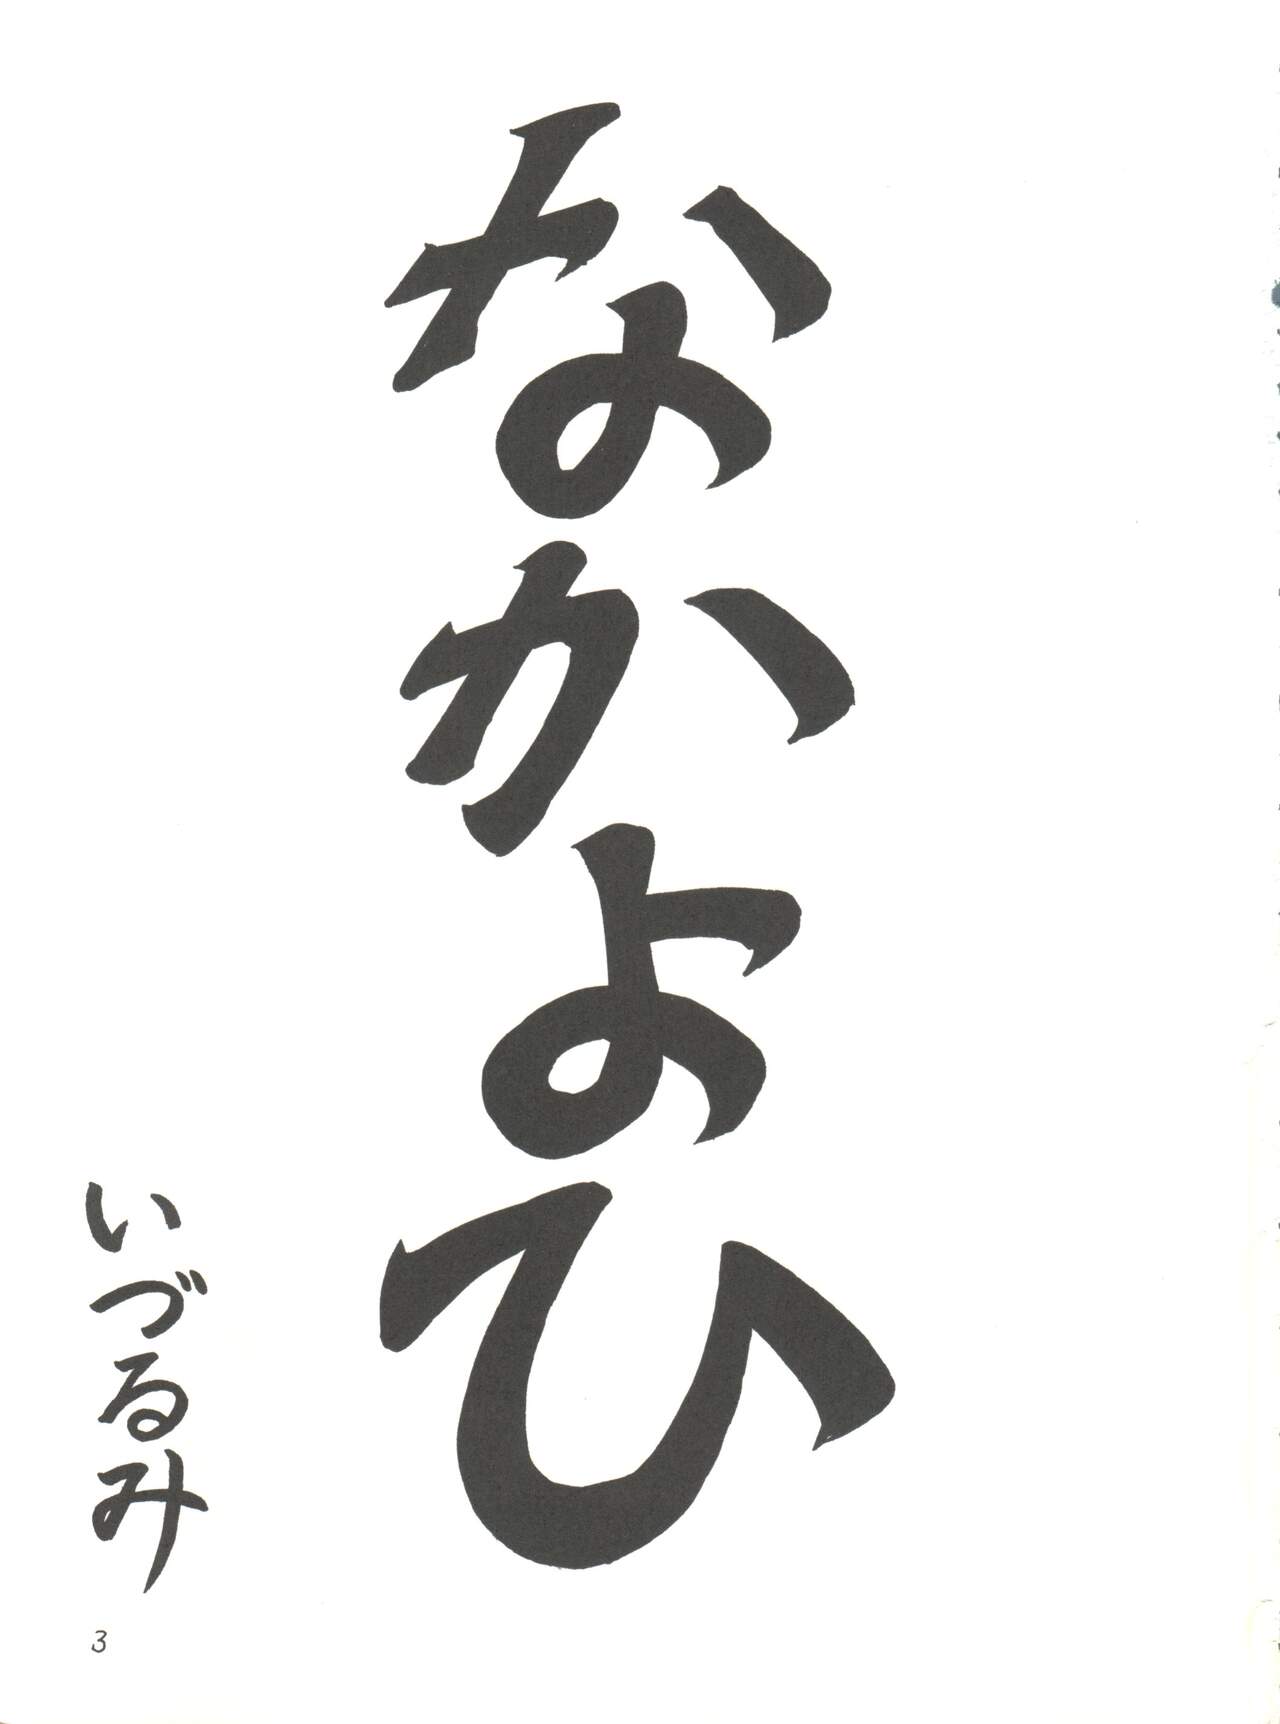 なかよひ
いづるみ
3